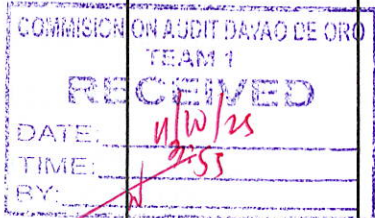 COMMISION ON AUDIT DAVAO DE ORO
TEAM 1
RECEIVED
DATE: 11/10/25
TIME: 2:55
BY: